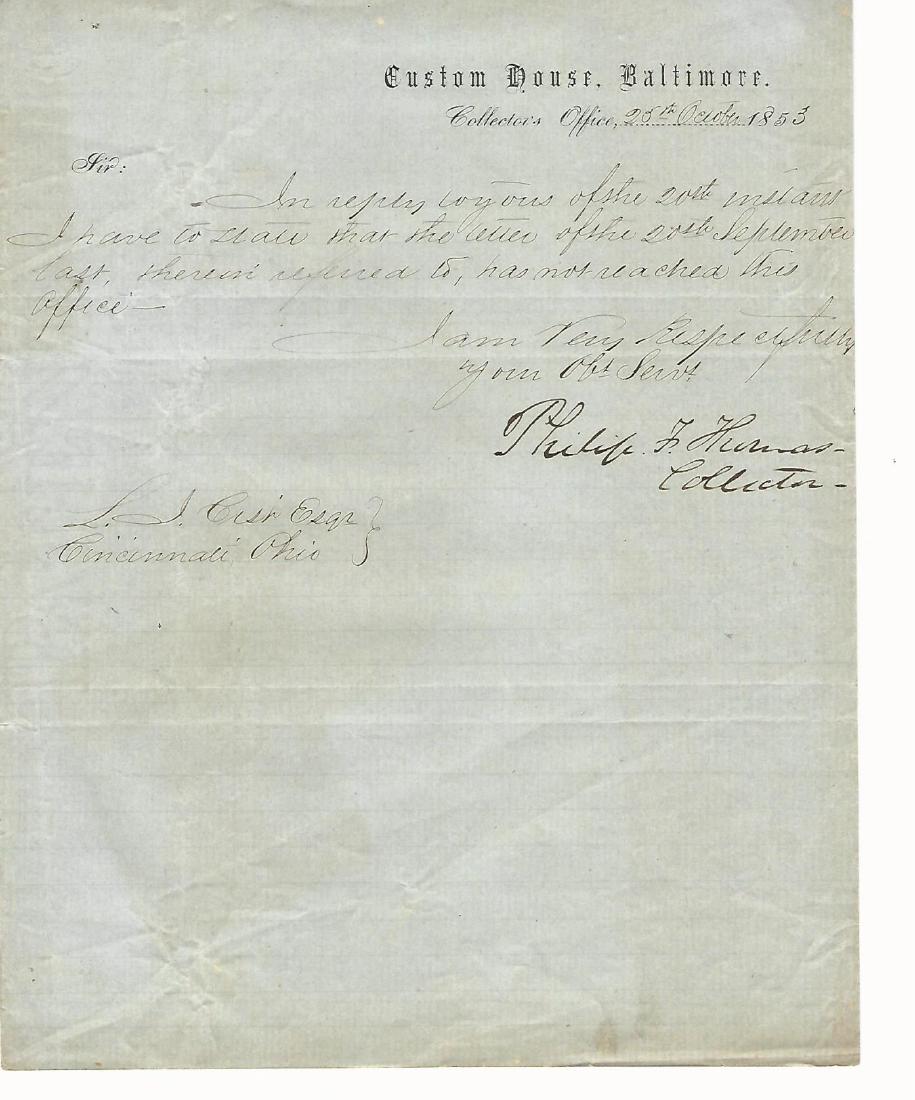 Custom House, Baltimore.
Collector's Office, 25th October 1853
Sir:
In reply to yours of the 20th instant
I have to state that the letter of the 20th September
last, therein referred to, has not reached this
Office—
I am Very Respectfully
Your Obt Servt
Philip F. Thomas—
Collector—
L. J. Cist Esqr
Cincinnati Ohio